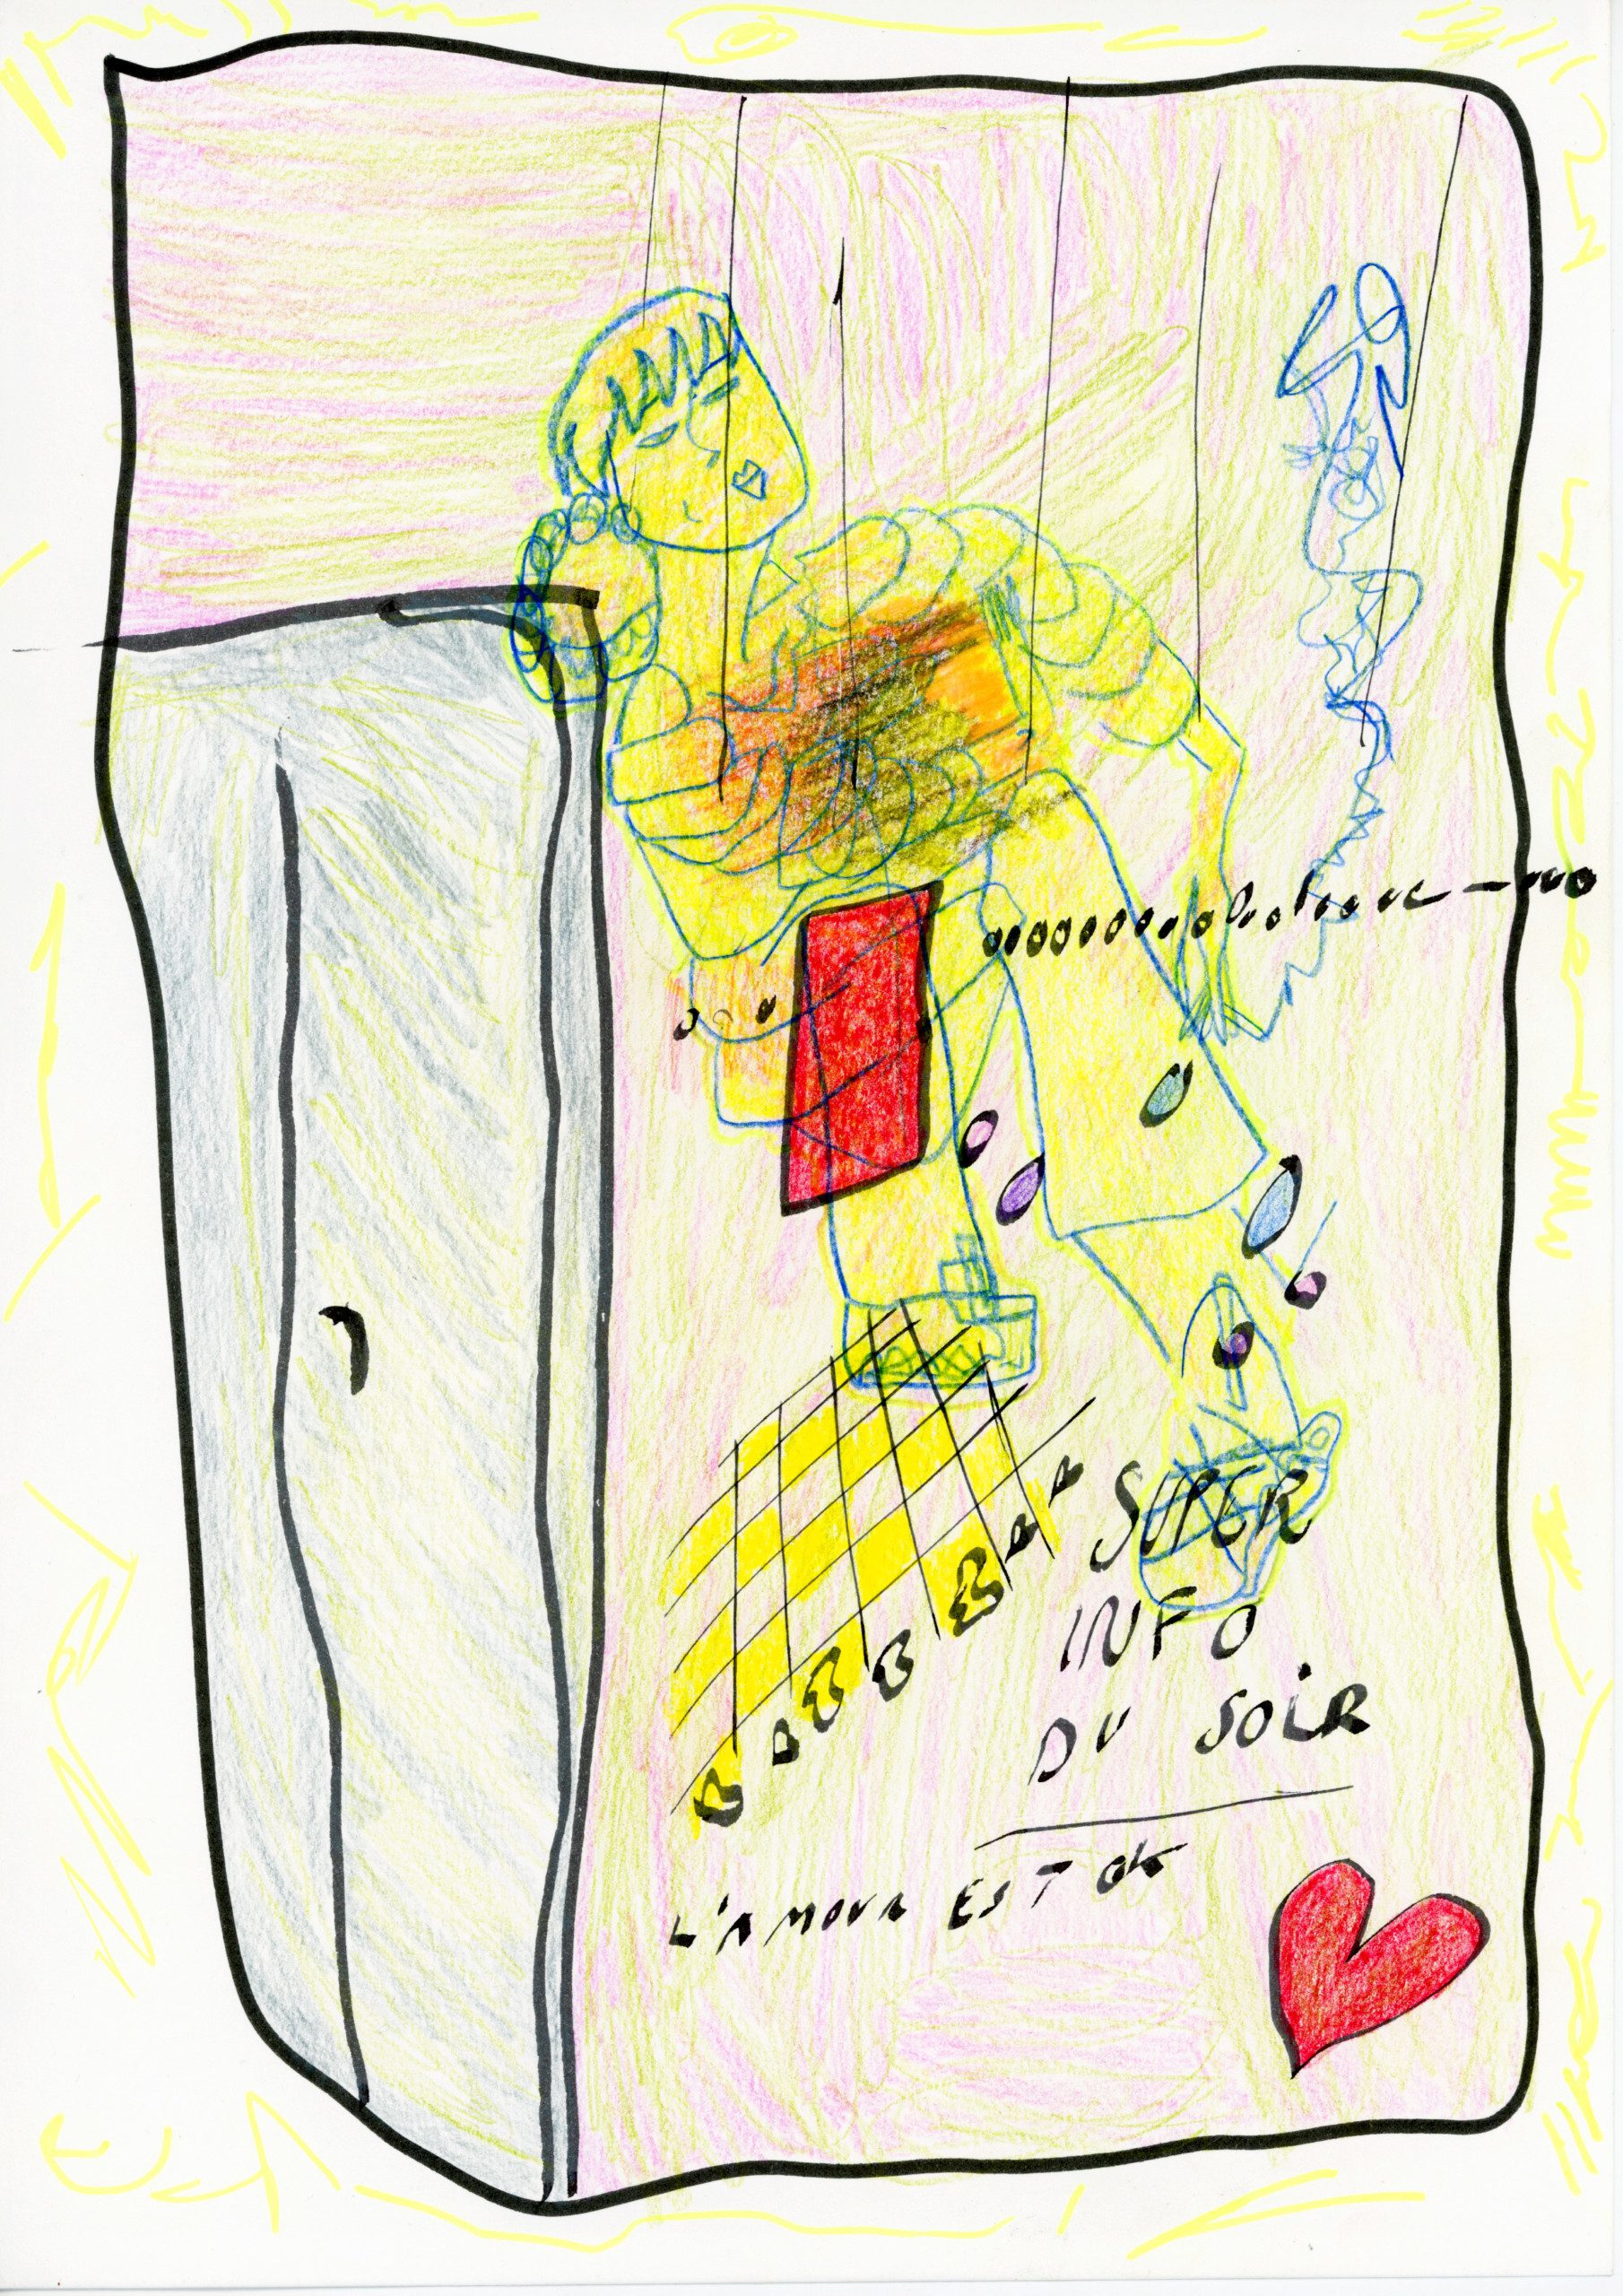 SUPER
INFO
DU SOiR
L'AMOUR EST OK